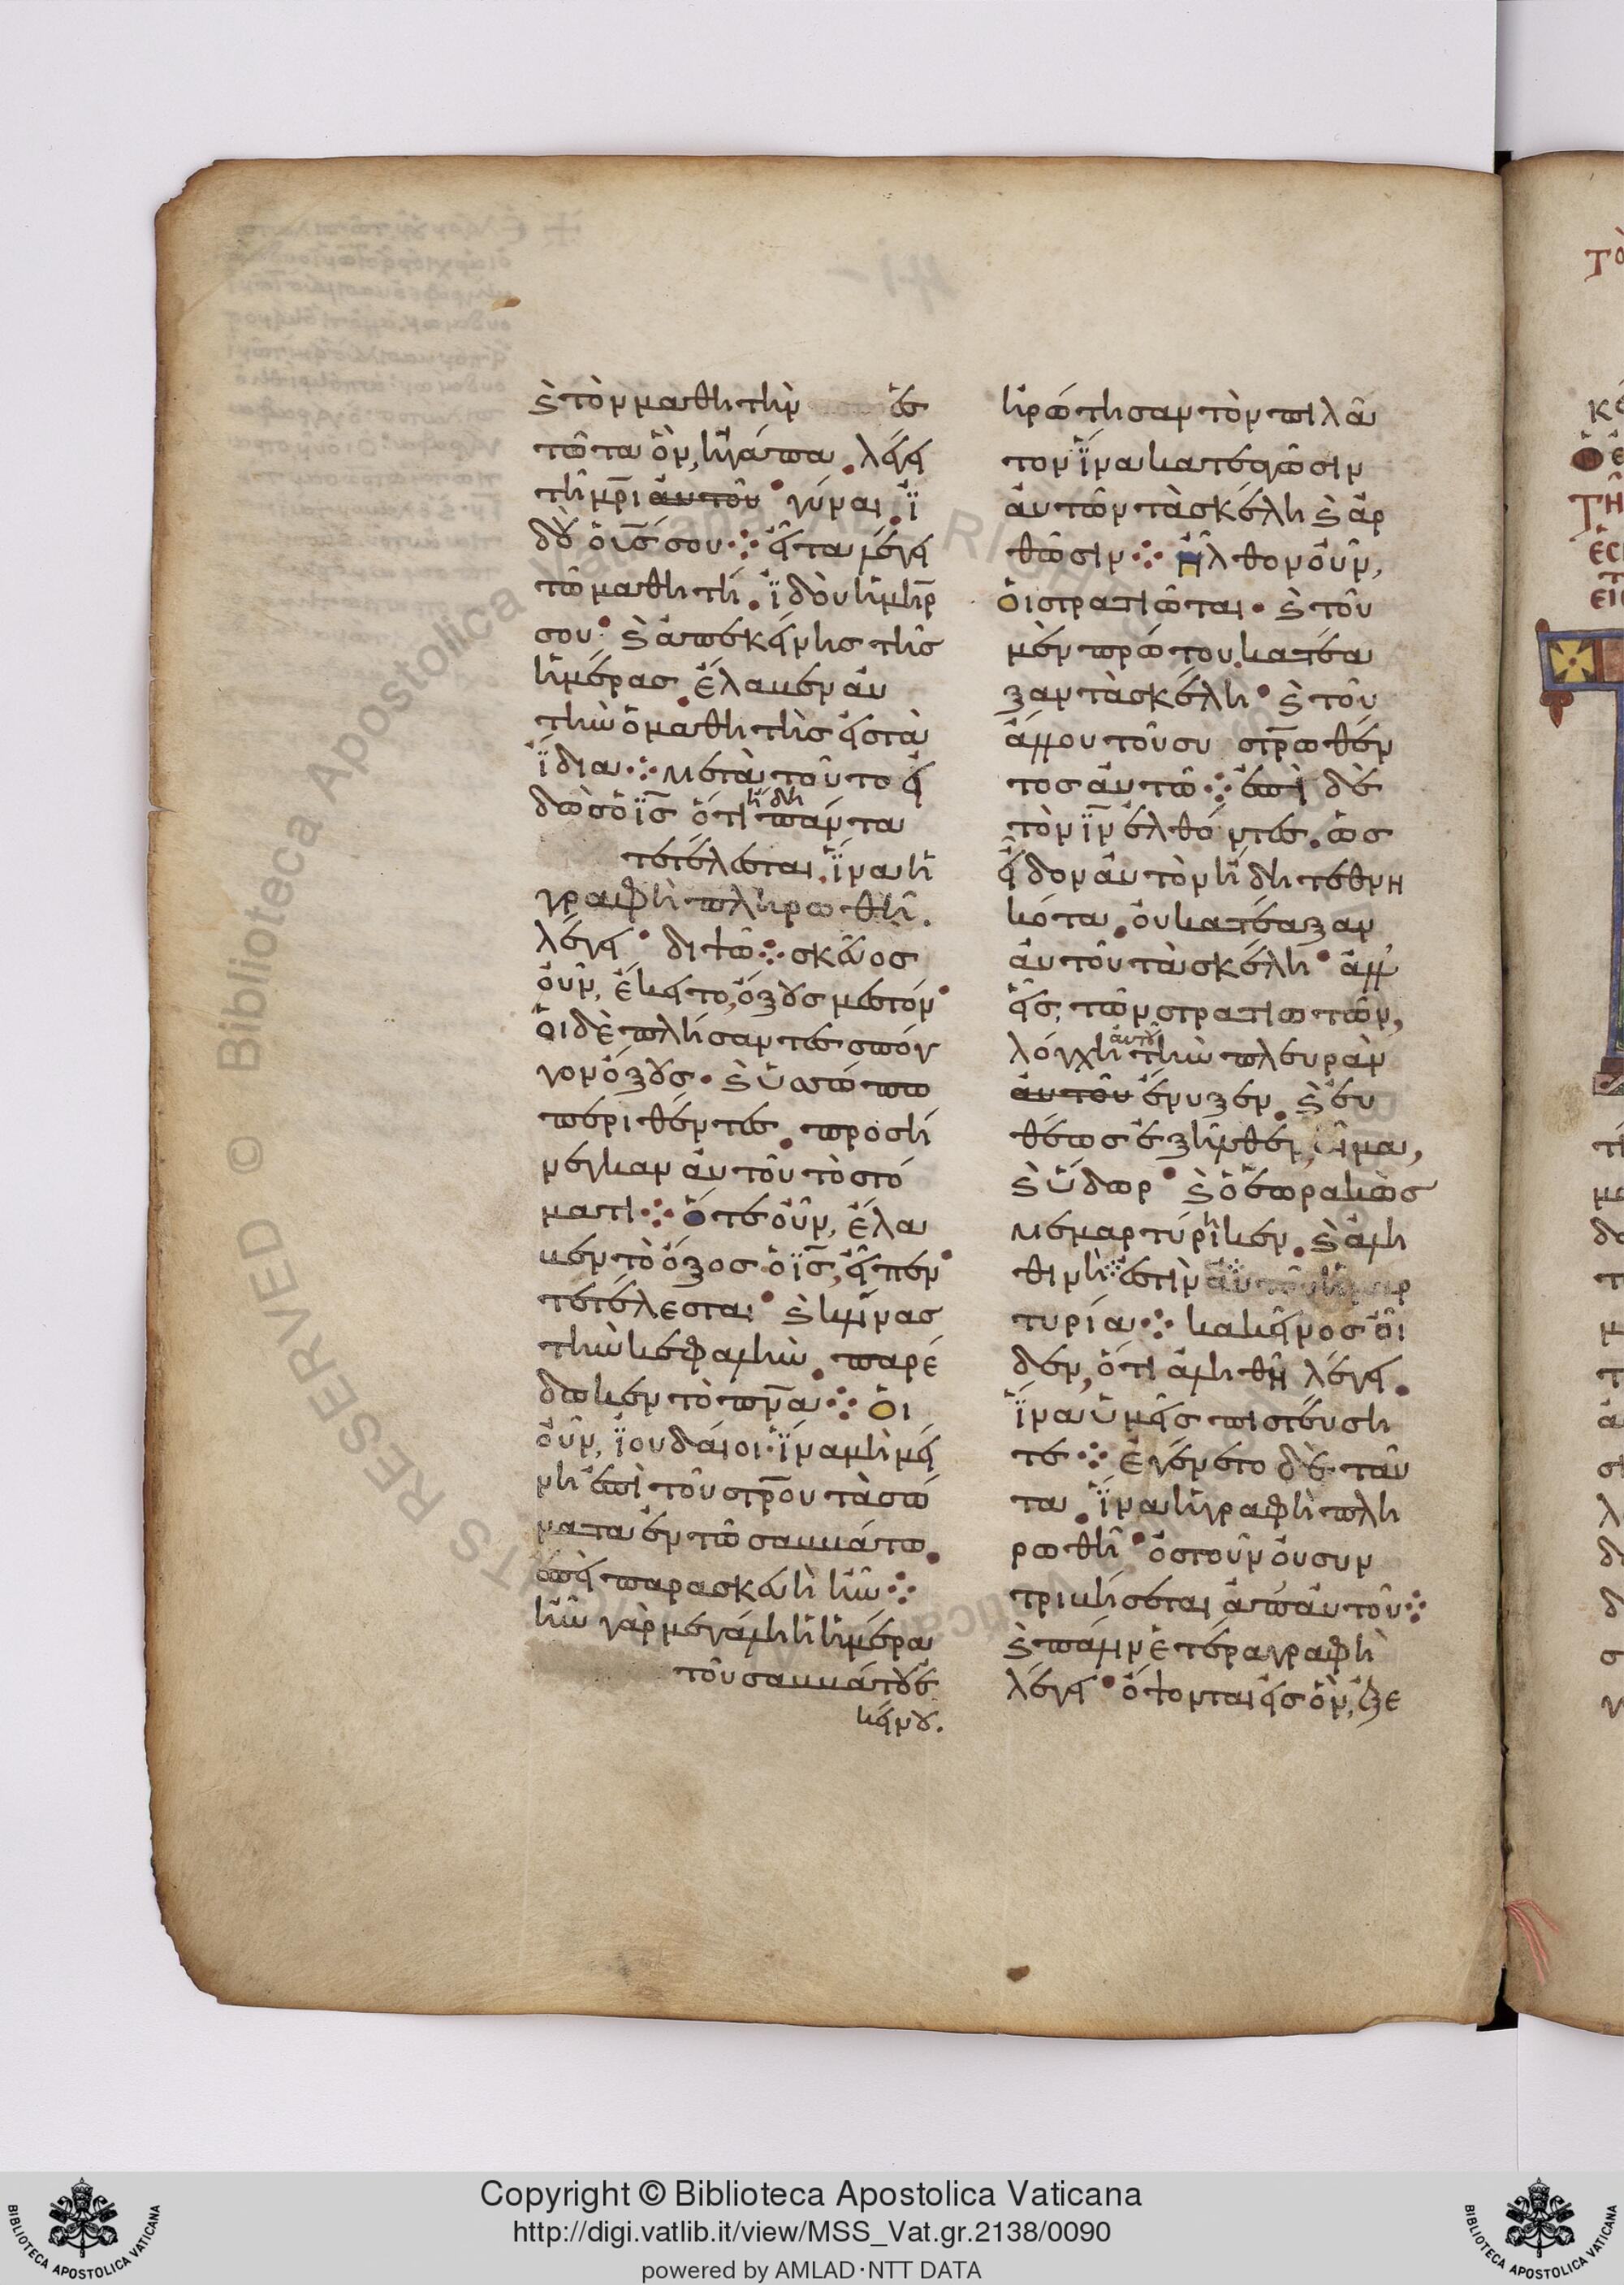 ϗ τὸν μαθητὴν ἑσ
τῶτα ὃν, ἠγάπα. λέγει
τῆ μρ̅ι αὐτοῦ· γύναι. ἴ
δοὺ ὁ υἱσ̅ σου⁘ εἶτα λέγει
τῶ μαθητῆ. ἰδοὺ ἡ μηρ̅
σου· ϗ ἀπεκείνησ τῆσ
ἡμέρασ ἔλαβεν αὐ
τὴν ὁ μαθητὴσ εἰστὰ
ἴδια⁘ Μετὰ τοῦτο εἰ
δὼσ ὁ ἰσ̅ ὅτι ἤδη πάντα
τετέλεσται. ἵνα ἡ
γραφὴ πληρωθῆ.
λέγει· διψῶ⁘ σκεῦοσ
οὖν, ἔκειτο, ὄξουσ μεστόν·
ὁι δὲ πλήσαντεσ σπόγ
γον ὄξουσ· ϗ ὑσσώπω
περιθέντεσ. προσή
νεγκαν αὐτοῦ τὸ στό
ματι⁘ Ὅτε οὖν, ἔλα
βεν τὸ ὄξοσ ὁ ἰσ̅, εἶπεν·
τετέλεσται· ϗ κλίνασ
τὴν κεφαλὴν. παρέ
δωκεν τὸ πνα̅⁘ Ὁι
οὖν, ἰουδάιοι· ἵνα μὴ μεί
νη ἐπὶ τοῦ στρ̅ου τὰ σώ
ματα ἐν τῶ σαββάτω.
ἐπεὶ παρασκευὴ ἦν⁘
ἦν γὰρ μεγάλη ἡ ἡμέρα
τοῦ σαββάτου ἐ
κείνου.
ἠρώτησαν τὸν πιλᾶ
τον ἵνα κατεαγῶσιν
αὐτῶν τὰ σκέλη ϗ ἀρ
θῶσιν⁘ Ἦλθον οὖν,
ὁι στρατιῶται· ϗ τοῦ
μὲν πρώτου κατέα
ξαν τὰ σκέλη· ϗ τοῦ
ἄλλου τοῦ συ στρ̅ωθέν
τοσ αὐτῶ⁘ ἐπὶ δὲ
τὸν ἰν̅ ἐλθόντεσ. ὡσ
εἶδον αὐτὸν ἤδη τεθνη
κότα. οὐ κατέαξαν
αὐτοῦ τὰ σκέλη· ἀλλ'
εἷσ, τῶν στρατιωτῶν,
λόγχη αὐτοῦ τὴν πλευρὰν
αὐτοῦ ἔνυξεν. ϗ ἐυ
θέωσ ἐξῆλθεν, αἷμα,
ϗ ὕδωρ· ϗ ὁ ἑωρακὼσ
μεμαρτύρηκεν. ϗ ἀλη
θινὴ ἐστὶν αὐτοῦ ἡ μαρ
τυρία⁘ κακεῖνοσ οἶ
δεν, ὅτι ἀληθῆ λέγει.
ἵνα ὑμεῖσ πιστεύση
τε⁘ Ἐγένετο δὲ ταῦ
τα. ἵνα ἡ γραφὴ πλη
ρωθῆ· ὀστοῦν οὐ συν
τριβήσεται ἀπ' αὐτοῦ⁘
ϗ πάλιν ἑτέρα γραφὴ
λέγει· ὄψονται εἰσ ὃν, ἐξε
Copyright © Biblioteca Apostolica Vaticana
http://digi.vatlib.it/view/MSS_Vat.gr.2138/0090
powered by AMLAD·NTT DATA